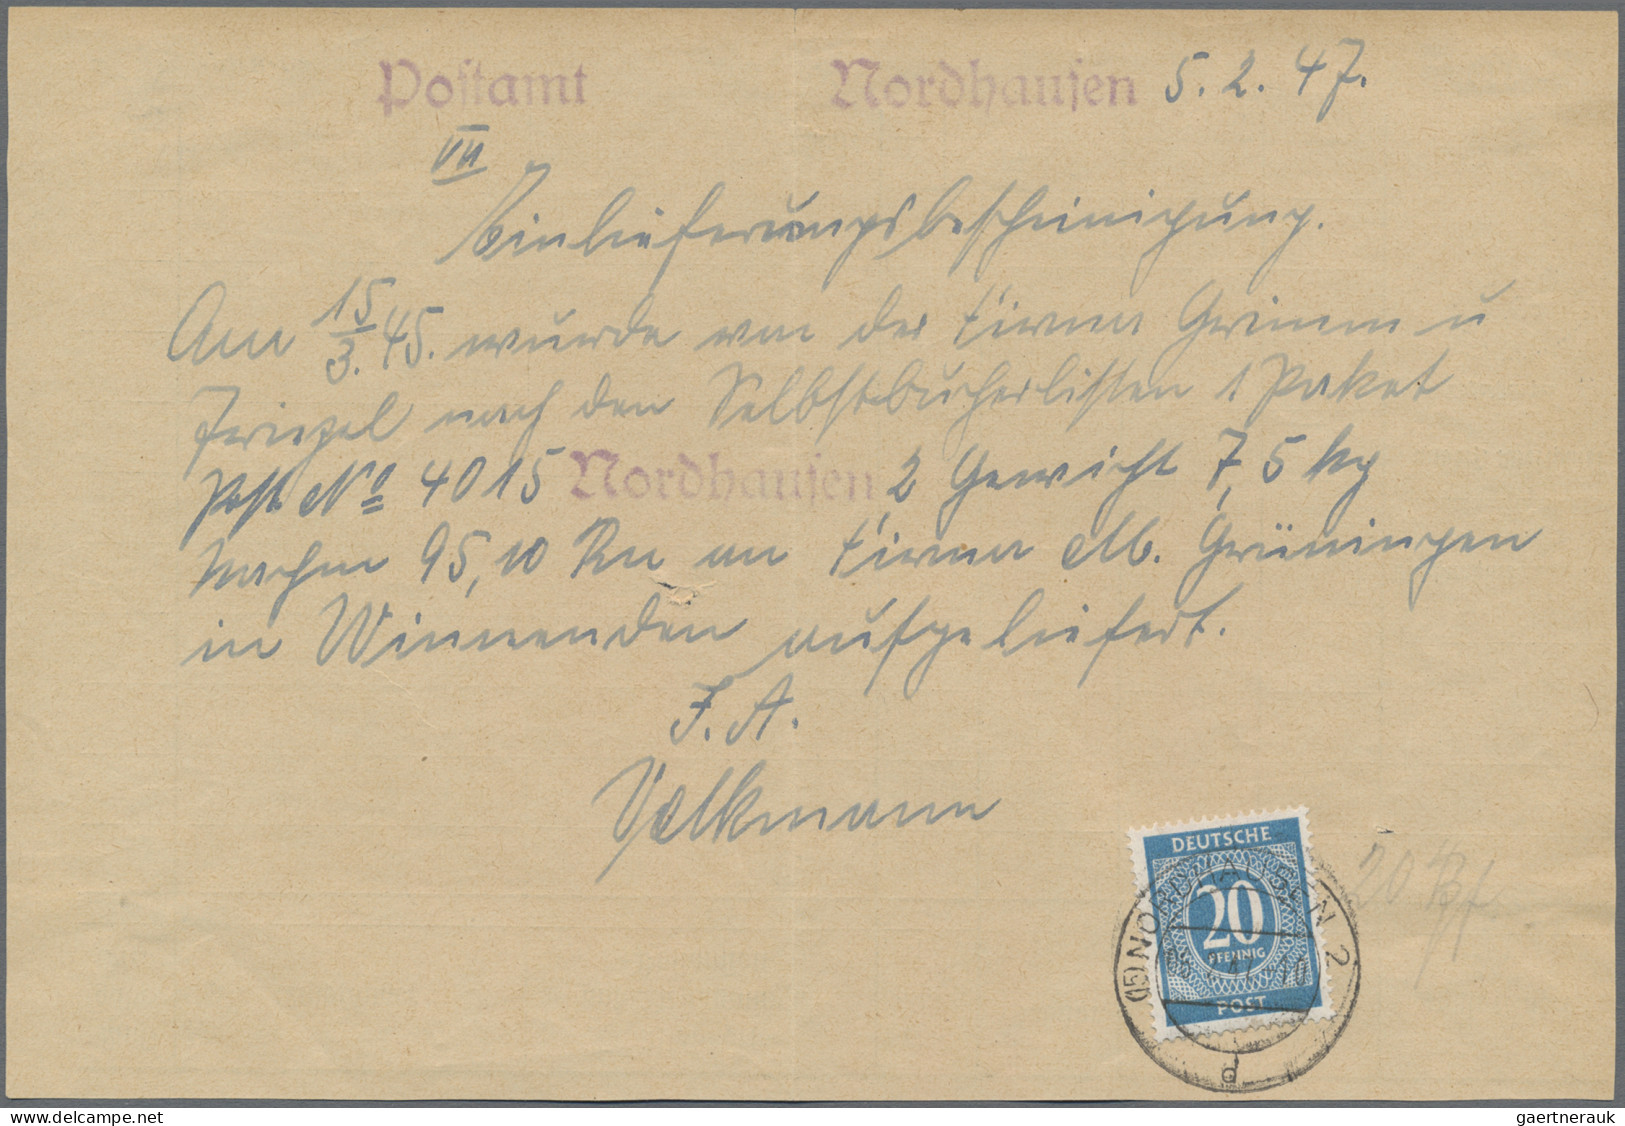 Postamt Nordhausen 5. 2. 47.
VII
Einlieferungsbescheinigung.
Am 15/3. 45. wurde von der Firma Grimm u
Triegel nach den Selbstbucherlisten 1 Paket
Post No 4015 Nordhausen 2 Gewicht 7,5 kg
Nachn 95,10 Rm an Firma M. Grüningen
in Winnenden aufgeliefert.
I. A.
Volkmann
DEUTSCHE
20
PFENNIG
POST
(15) NORDHAUSEN 2
a
20 Pf
gaertnerauk | delcampe.net